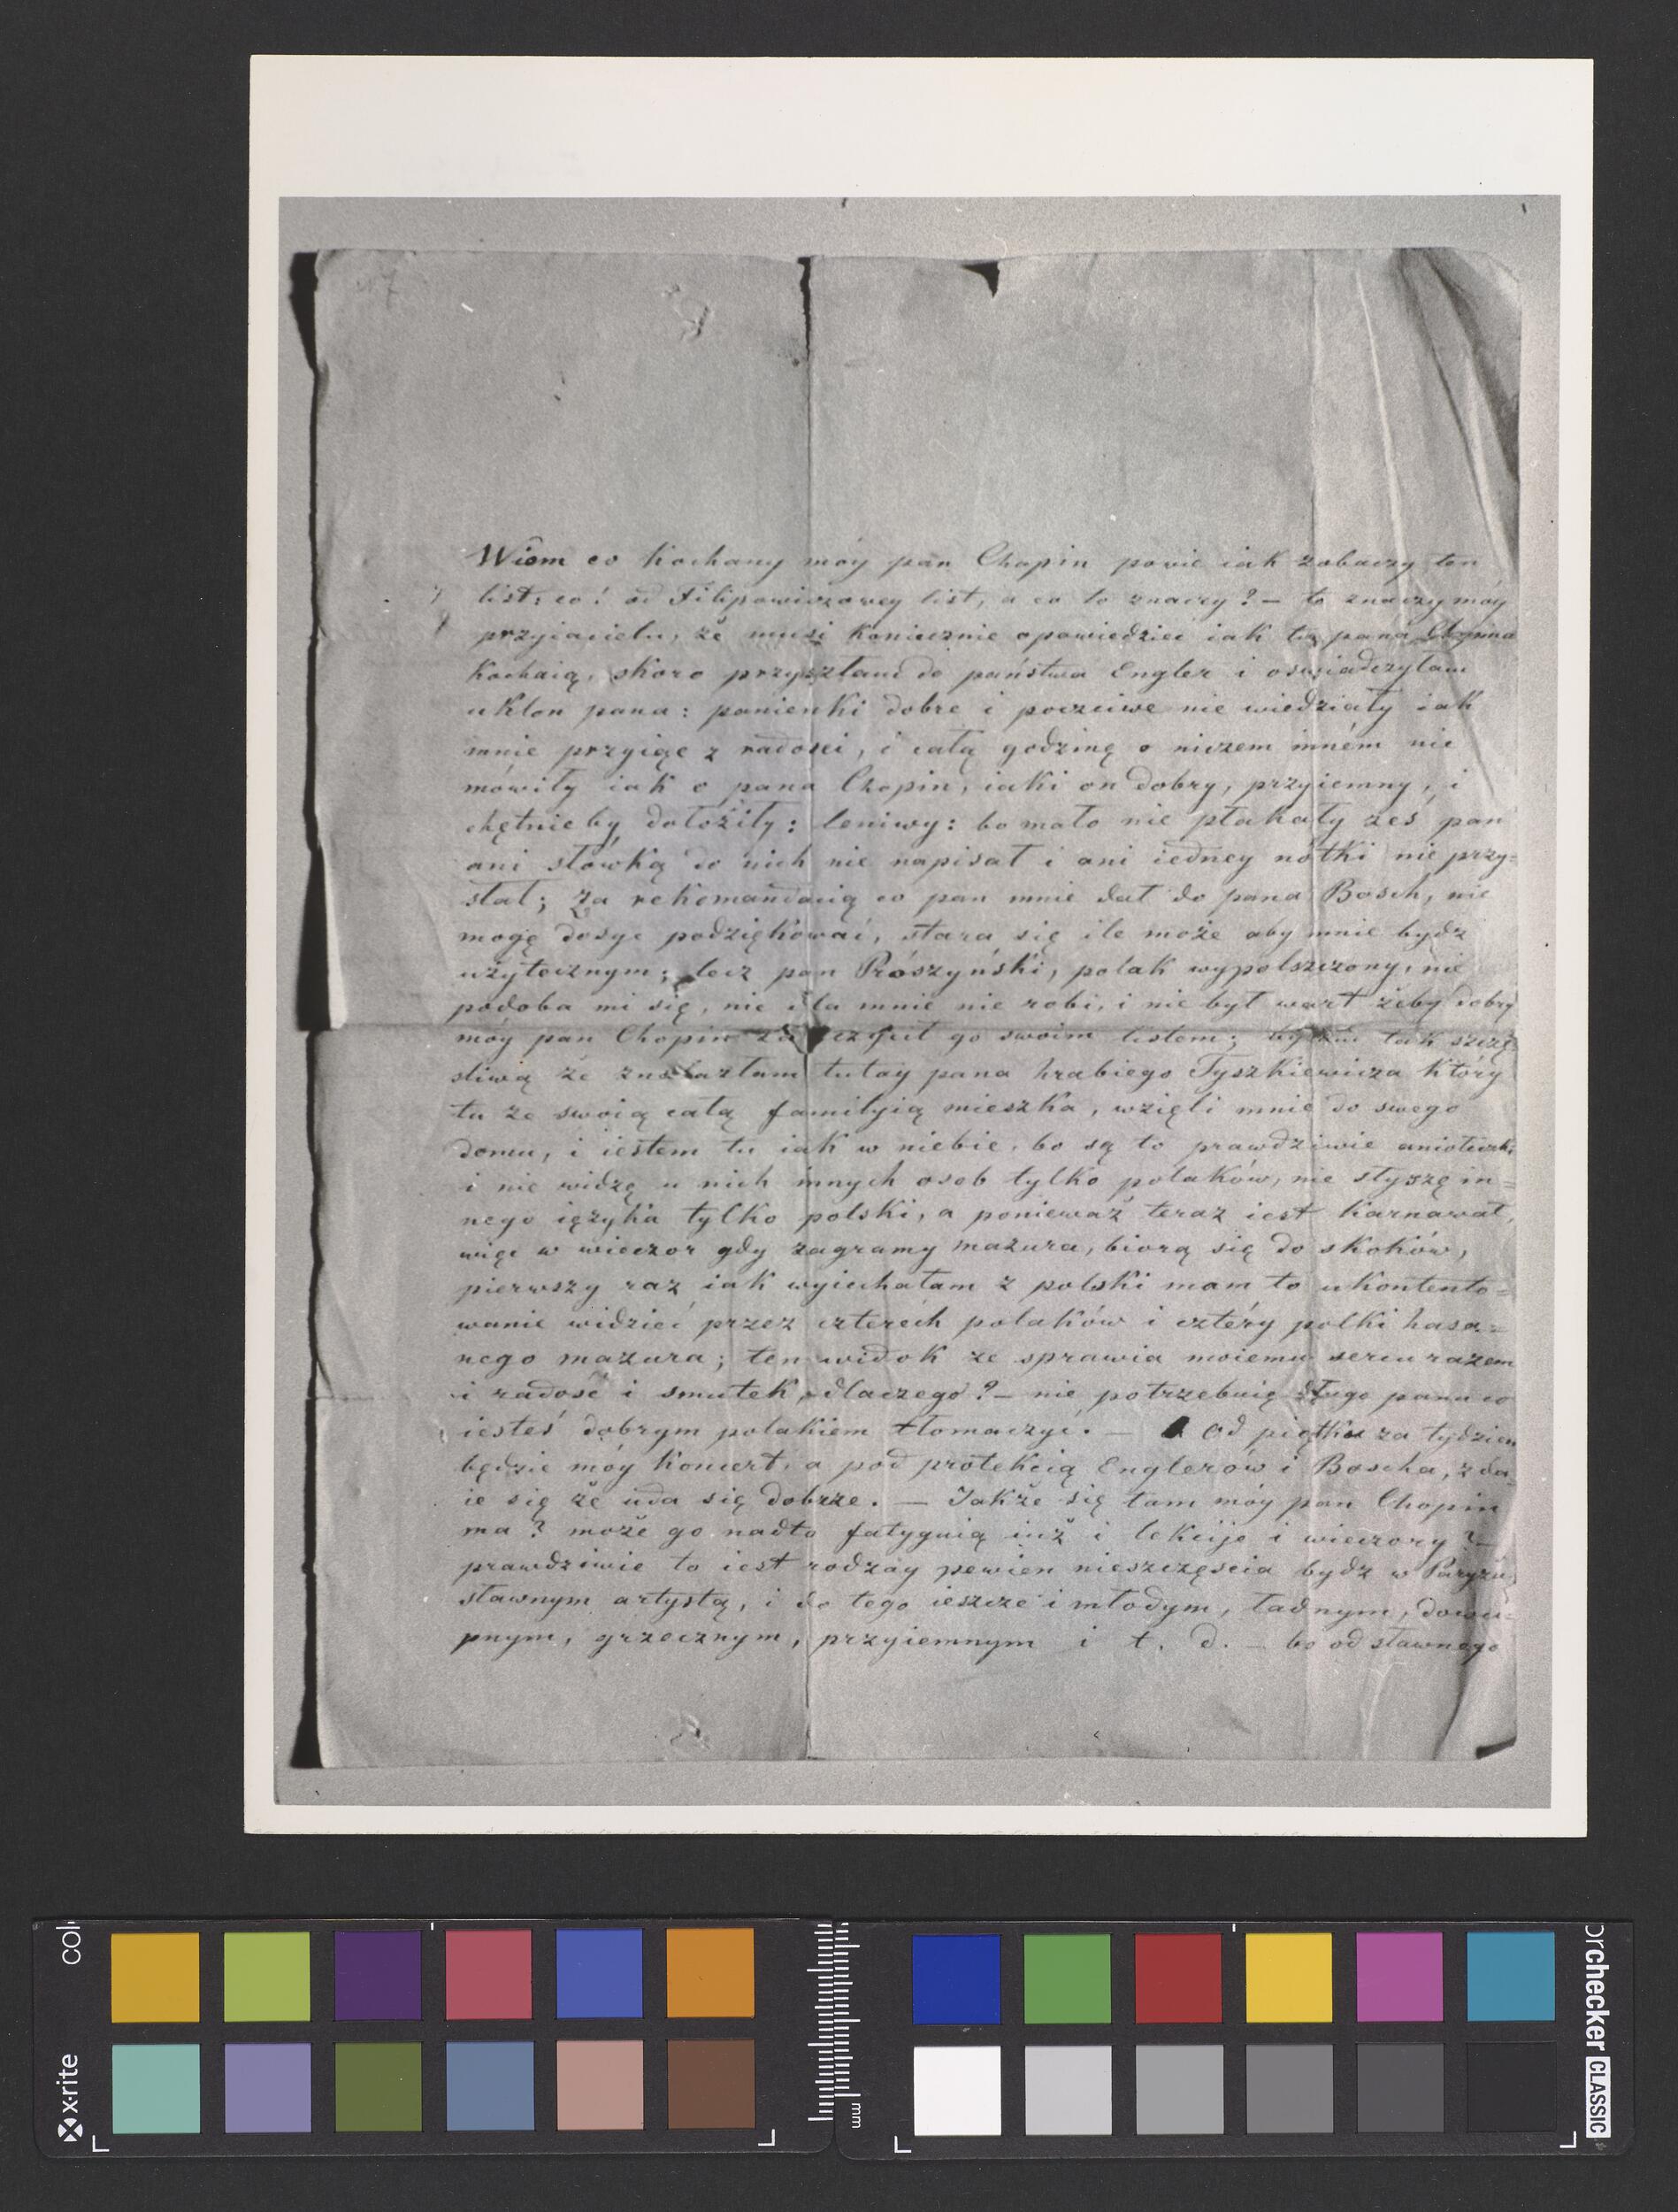 Wiem co kochany móy pan Chopin powie iak zobaczy ten
list: co! od Filipowiczowey list, a co to znaczy? — to znaczy móy
przyiacielu, że musi koniecznie opowiedzieć iak tu pana Chopina
kochaią, skoro przyszłam do państwa Engler i oswiadczyłam
ukłon pana: panienki dobre i poczciwe nie wiedziały iak
mnie przyiąc z radosci, i całą godzinę o niczem inném nie
mówiły iak o pana Chopin, iaki on dobry, przyiemny, i
chętnie by dołożyły: leniwy: bo mało nie płakały żeś pan
ani słówka do nich nie napisał i ani iedney nótki nie przy=
słał; za rekomandacią co pan mnie dał do pana Bosch, nie
mogę dosyc podziękować, stara się ile może aby mnie bydz
użytecznym; lecz pan Prószyński, polak wypolszczony, nie
podoba mi się, nic dla mnie nie robi, i nie był wart żeby dobry
móy pan Chopin go swoim listem; tak szczę=
sliwą że znalazłam tutay pana hrabiego Tyszkiewicza który
tu ze swoią całą familyią mieszka, wzięli mnie do swego
domu, i iestem tu iak w niebie, bo są to prawdziwie aniołeczki
i nie widzę u nich innych osob tylko polaków, nie słyszę in=
nego ięzyka tylko polski, a ponieważ teraz iest karnawał,
więc w wieczor gdy zagramy mazura, biorą się do skoków,
pierwszy raz iak wyiechałam z polski mam to ukontento=
wanie widzieć przez czterech polaków i cztéry polki hasa=
nego mazura; ten widok ze sprawia moiemu sercu razem
i radość i smutek, dlaczego? — nie potrzebuię długo panu co
iesteś dobrym polakiem tłomaczyć. — Od piątku za tydzien
będzie móy koncert, a pod protekcią Englerów i Boscha, zda=
ie się że uda się dobrze. — Jakże się tam móy pan Chopin
ma? może go nadto fatyguią iuż i lekcije i wieczory? —
prawdziwie to iest rodzay pewien nieszczęscia bydz w Paryżu
sławnym artystą, i do tego ieszcze i młodym, ładnym, dowci=
pnym, grzecznym, przyiemnym i t. d. — bo od sławnego
x-rite
colorchecker CLASSIC
mm